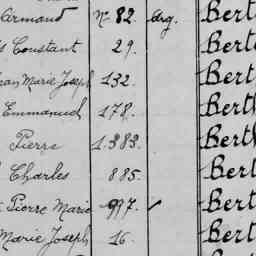 Armand № 82. arg. Bert
Constant 29. Bert
Jean Marie Joseph 132. Bert
Emmanuel 178. Berth
Pierre 1.383. Berth
Charles 885. Bert
Pierre Marie 997. ✓ Bert
Marie Joseph 16. Bert